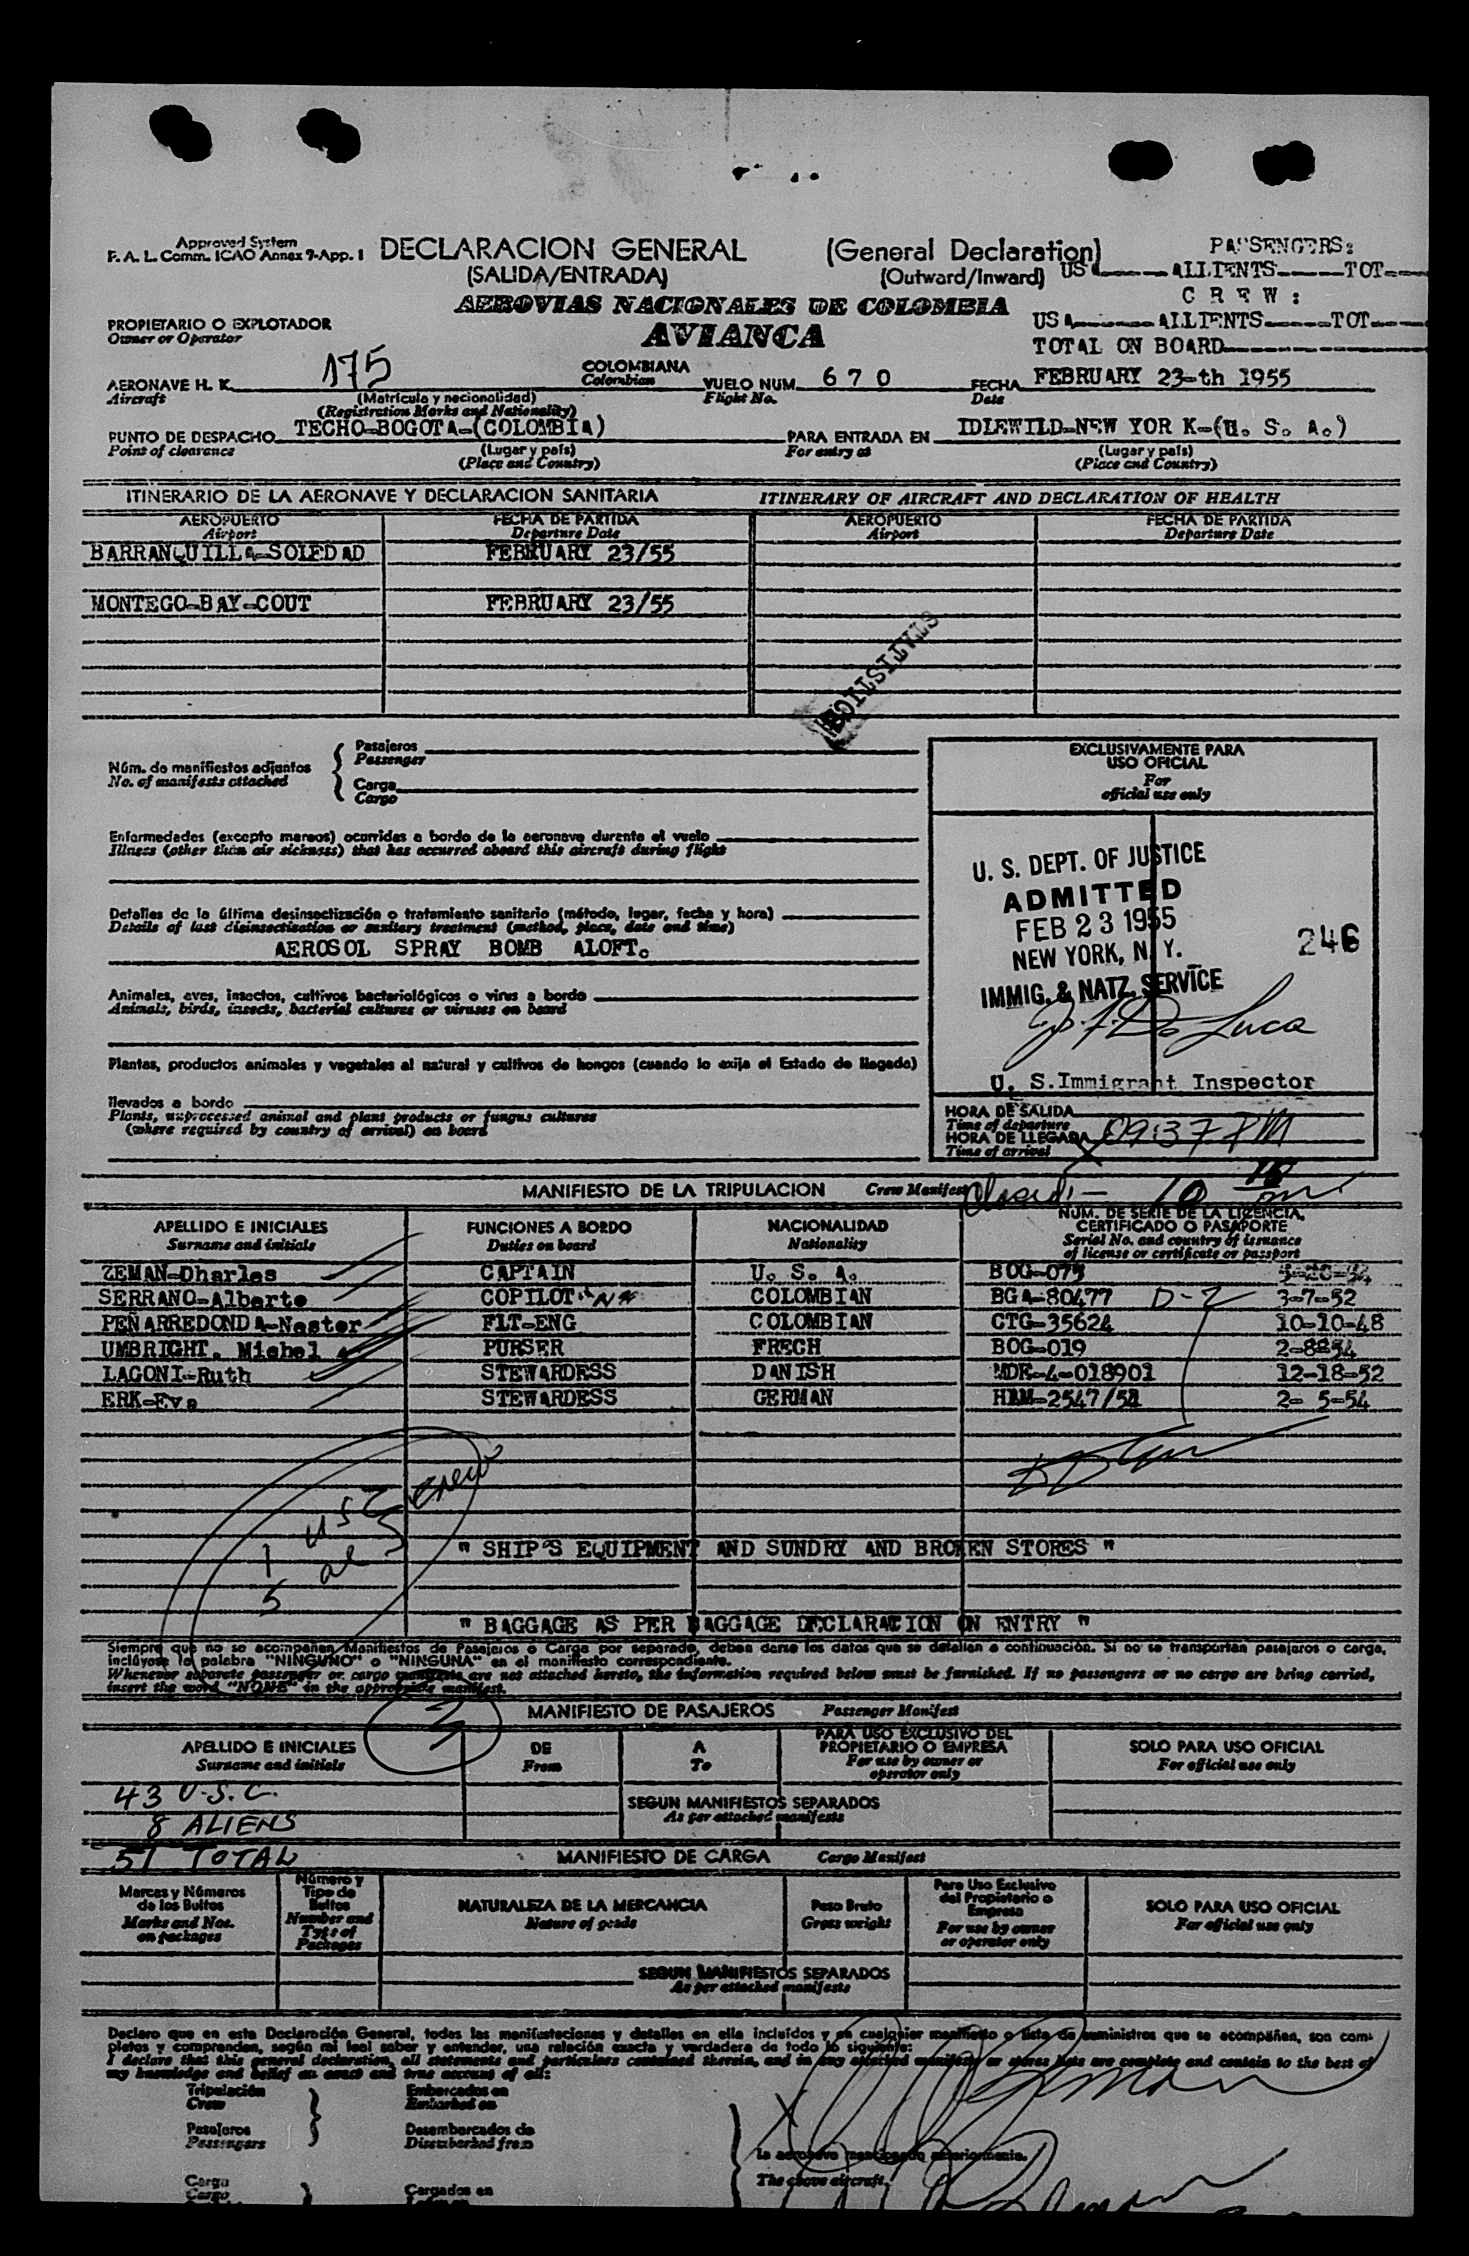 Approved System
F. A. L. Comm. ICAO Annex 9-App. 1
DECLARACION GENERAL (General Declaration)
(SALIDA/ENTRADA) (Outward/Inward)
PASSENGERS:
US ALLIENTS TOT
C R E W :
US ALLIENTS TOT
TOTAL ON BOARD
AEROVIAS NACIONALES DE COLOMBIA
AVIANCA
PROPIETARIO O EXPLOTADOR
Owner or Operator
AERONAVE H. K. 175 COLOMBIANA VUELO NUM. 6 7 0 FECHA FEBRUARY 23-th 1955
Aircraft (Matrícula y nacionalidad) Colombian Flight No. Date
(Registration Marks and Nationality)
PUNTO DE DESPACHO TECHO-BOGOTA-(COLOMBIA) PARA ENTRADA EN IDLEWILD-NEW YOR K-(U. S. A.)
Point of clearance (Lugar y país) For entry at (Lugar y país)
(Place and Country) (Place and Country)
ITINERARIO DE LA AERONAVE Y DECLARACION SANITARIA ITINERARY OF AIRCRAFT AND DECLARATION OF HEALTH
AEROPUERTO FECHA DE PARTIDA AEROPUERTO FECHA DE PARTIDA
Airport Departure Date Airport Departure Date
BARRANQUILLA-SOLEDAD FEBRUARY 23/55
MONTEGO-BAY-COUT FEBRUARY 23/55
STATISTICS
Núm. de manifiestos adjuntos
No. of manifests attached
Pasajeros
Passenger
Carga
Cargo
Enfermedades (excepto mareos) ocurridas a bordo de la aeronave durante el vuelo
Illness (other than air sickness) that has occurred aboard this aircraft during flight
Detalles de la última desinsectización o tratamiento sanitario (método, lugar, fecha y hora)
Details of last disinsectisation or sanitary treatment (method, place, date and time)
AEROSOL SPRAY BOMB ALOFT.
Animales, aves, insectos, cultivos bacteriológicos o virus a bordo
Animals, birds, insects, bacterial cultures or viruses on board
Plantas, productos animales y vegetales al natural y cultivos de hongos (cuando lo exija el Estado de llegada)
llevados a bordo
Plants, unprocessed animal and plant products or fungus cultures
(where required by country of arrival) on board
EXCLUSIVAMENTE PARA
USO OFICIAL
For
official use only
U. S. DEPT. OF JUSTICE
ADMITTED
FEB 23 1955
NEW YORK, N. Y.
246
IMMIG. & NATZ. SERVICE
De Luca
U. S. Immigrant Inspector
HORA DE SALIDA
Time of departure
HORA DE LLEGADA 09:37 PM
Time of arrival
MANIFIESTO DE LA TRIPULACION Crew Manifest
APELLIDO E INICIALES FUNCIONES A BORDO NACIONALIDAD NUM. DE SERIE DE LA LICENCIA,
CERTIFICADO O PASAPORTE
Surname and initials Duties on board Nationality Serial No. and country of issuance
of license or certificate or passport
ZEMAN-Dharles CAPTAIN U. S. A. BOG-075
SERRANO-Alberto COPILOT COLOMBIAN BGA-80477 D-2 3-7-52
PEÑARREDONDA-Nestor FLT-ENG COLOMBIAN CTG-35624 10-10-48
UMBRIGHT. Michel PURSER FRECH BOG-019
LAGONI-Ruth STEWARDESS DANISH MDE-4-018901 12-18-52
ERK-Eva STEWARDESS GERMAN HAM-2547/54 2- 5-54
1 USC
5 al
crew
" SHIP'S EQUIPMENT AND SUNDRY AND BROKEN STORES "
" BAGGAGE AS PER BAGGAGE DECLARATION ON ENTRY "
Siempre que no se acompañen Manifiestos de Pasajeros o Carga por separado, deben darse los datos que se detallan a continuación. Si no se transportan pasajeros o carga,
inclúyase la palabra "NINGUNO" o "NINGUNA" en el manifiesto correspondiente.
Whenever separate passenger or cargo manifests are not attached hereto, the information required below must be furnished. If no passengers or no cargo are being carried,
insert the word "NONE" in the appropriate manifest.
MANIFIESTO DE PASAJEROS Passenger Manifest
APELLIDO E INICIALES DE A PARA USO EXCLUSIVO DEL
PROPIETARIO O EMPRESA SOLO PARA USO OFICIAL
Surname and initials From To For use by owner or
operator only For official use only
43 U.S.C.
8 ALIENS
51 TOTAL
SEGUN MANIFIESTOS SEPARADOS
As per attached manifests
MANIFIESTO DE CARGA Cargo Manifest
Marcas y Números
de los Bultos
Marks and Nos.
on packages
Número y
Tipo de
Bultos
Number and
Type of
Packages
NATURALEZA DE LA MERCANCIA
Nature of goods
Peso Bruto
Gross weight
Para Uso Exclusivo
del Propietario o
Empresa
For use by owner
or operator only
SOLO PARA USO OFICIAL
For official use only
SEGUN MANIFIESTOS SEPARADOS
As per attached manifests
Declaro que en esta Declaración General, todas las manifestaciones y detalles en ella incluídos y en cualquier manifiesto o lista de suministros que se acompañen, son com-
pletos y comprenden, según mi leal saber y entender, una relación exacta y verdadera de todo lo siguiente:
I declare that this general declaration, all statements and particulars contained therein, and in any attached manifests or stores lists are complete and contain to the best of
my knowledge and belief an exact and true account of all:
Tripulación Embarcados en
Crew Embarked on
Pasajeros Desembarcados de
Passengers Disembarked from
La aeronave mencionada anteriormente.
The above aircraft.
Carga Cargados en
Cargo